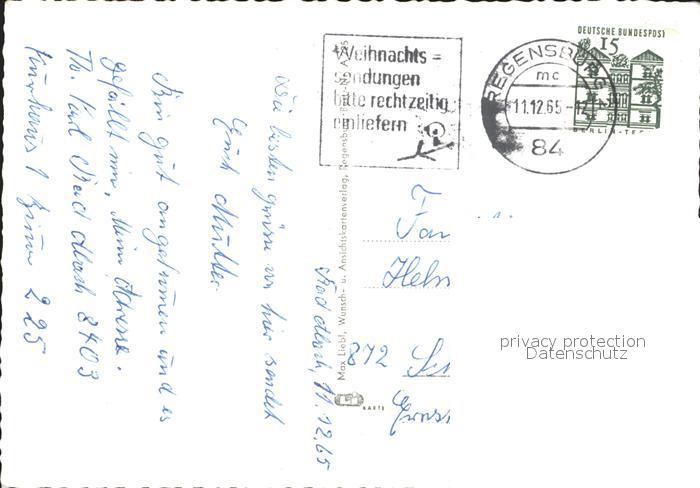 Bad Abbach, 11.12.65
Die besten Grüsse von hier sendet
Euch Mutter.
Bin gut angekommen und es
gefällt mir, Meine Adresse.
Th. Karl Bad Abbach 8403
Kurhaus 1 Zimmer 225
Weihnachts=
sendungen
bitte rechtzeitig
einliefern
REGENSBURG
mc
11.12.65-12
84
DEUTSCHE BUNDESPOST
15
BERLIN-TE
Max Liebl, Wunsch- u. Ansichtskartenverlag, Regensburg
KARTE
Fam
Helm
872
privacy protection
Datenschutz